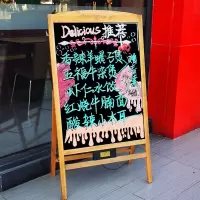 Delicious 推荐
香辣羊蝎石煲
五福牛杂煲
虾仁水饺
红烧牛腩面
酸辣小木耳